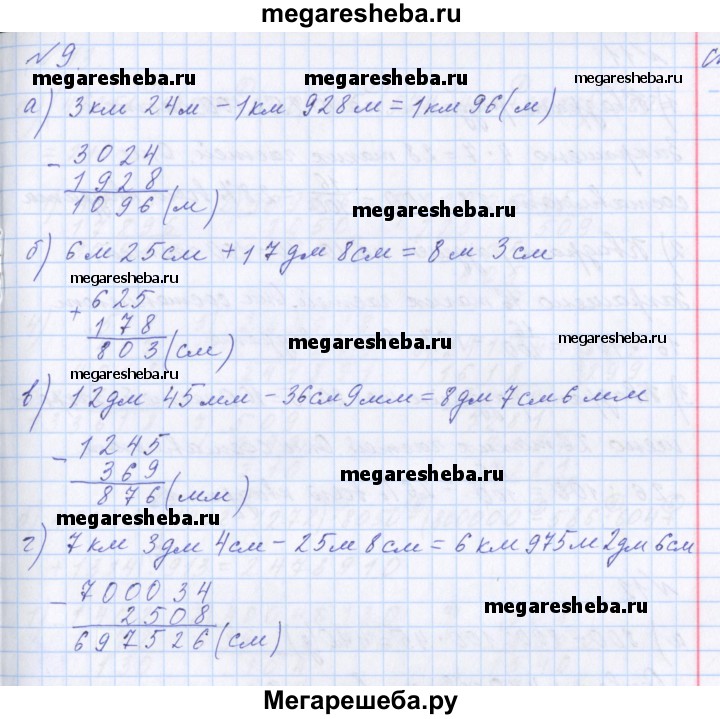 megaresheba.ru
№9.
megaresheba.ru megaresheba.ru megaresheba.ru
а) 3км 24м – 1км 928м = 1км 96(м)
– 3024
1928
1096(м)
megaresheba.ru
б) 6м 25см + 17дм 8см = 8м 3см
megaresheba.ru
+ 625
178
803(см)
megaresheba.ru
в) 12дм 45мм – 36см 9мм = 8дм 7см 6мм
– 1245
369
876(мм)
megaresheba.ru
megaresheba.ru
г) 7км 3дм 4см – 25м 8см = 6км 975м 2дм 6см
– 700034
2508
697526(см)
megaresheba.ru
Мегарешеба.ру